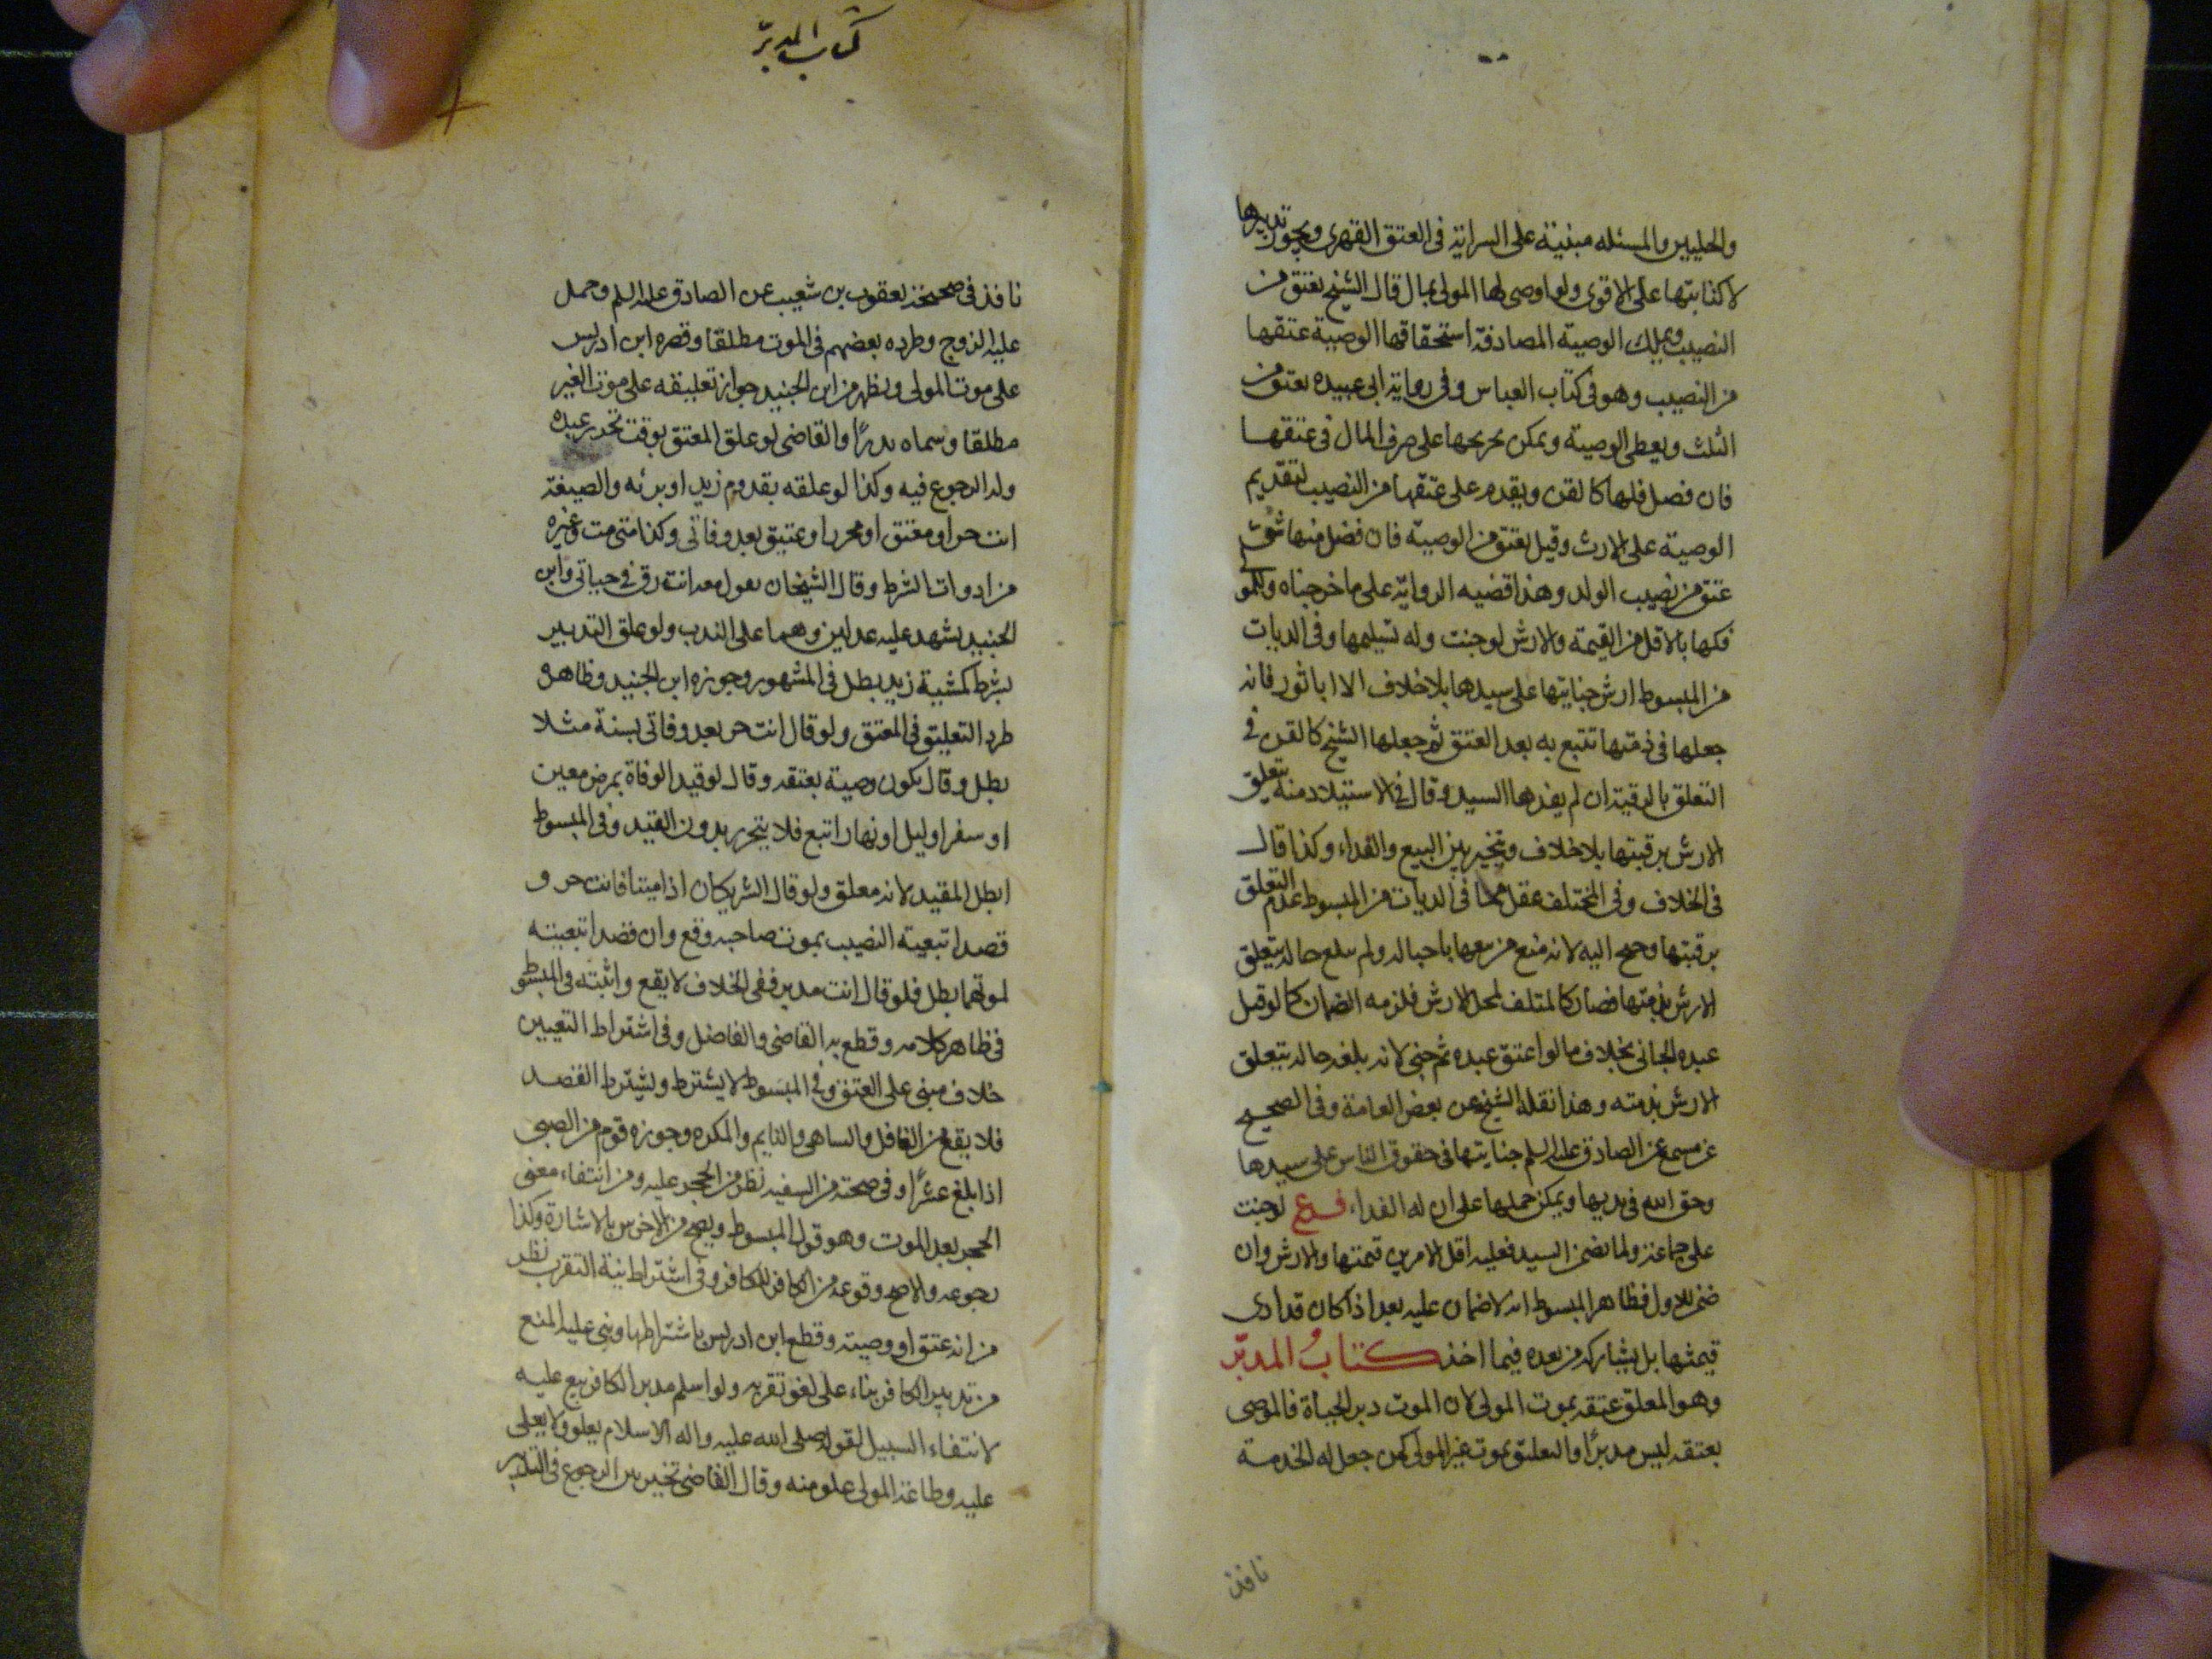 والحلبيين والمسئله مبنية على السراية فى العتق القهرى ويجوز تدبيرها
لا كتابتها على الاقوى ولو اوصى لها المولى بمال قال الشيخ يعتق من
النصيب ويملك الوصية المصادفة استحقاقها الوصية عتقها
من النصيب وهو فى كتاب العباس وفى رواية ابى عبيده يعتق من
الثلث ويعطى الوصية ويمكن تخريجها على صرف المال فى عتقها
فان فضل فلها كالقن ويقدم على عتقها من النصيب لتقديم
الوصية على الارث وقيل يعتق من الوصية فان فضل منها شئ
عتق من نصيب الولد وهذا قضيه الرواية على ما خرجناه وللمو
فكها بالاقل من القيمة والارش لو جنت وله تسليمها وفى الديات
من المبسوط ارش جنايتها على سيدها بلا خلاف الا اباثور فانه
جعلها فى ذمتها تتبع به بعد العتق ثم جعلها الشيخ كالقن فى
التعلق بالرقبة ان لم يفدها السيد وقال فى الاستيلاد منه يتعلق
الارش برقبتها بلا خلاف ويتخير بين البيع والفداء وكذا قال
فى الخلاف وفى المختلف عقل مما فى الديات من المبسوط عدم التعلق
برقبتها وجنح اليه لانه منع من بيعها باحباله ولم يبلغ حاله يتعلق
الارش بذمتها فصار كالمتلف لمحل الارش فلزمه الضمان كما لو قتل
عبده الجانى بخلاف ما لو اعتق عبده ثم جنى لانه بلغه حاله يتعلق
الارش بذمته وهذا نقله الشيخ عن بعض العامة وفى الصحيح
عن مسمع عن الصادق عليه السلم جنايتها فى حقوق الناس على سيدها
وحق الله فى بدنها ويمكن حملها على ان له الفداء فرع لو جنت
على جماعة ولما يضمن السيد فعليه اقل الامرين قيمتها والارش وان
ضمن للاول فظاهر المبسوط انه لا ضمان عليه بعد اذا كان قد ادى
قيمتها بل يشاركه من بعده فيما اخذ كتاب المدبّر
وهو المعلق عتقه بموت المولى لان الموت دبر الحياة فالموصى
بعتقه ليس مدبرًا والتعليق بموت غير المولى كمن جعل له الخدمة
نافذ
كتاب المدبّر
نافذ فى صحيحة يعقوب بن شعيب عن الصادق عليه السلم وحمل
عليه الزوج وطرده بعضهم فى الموت مطلقا وقصره ابن ادريس
على موت المولى ويظهر من ابن الجنيد جواز تعليقه على موت الغير
مطلقا وسماه نذرًا والقاضى لو علق المعتق بوقت تحرر عبده
وله الرجوع فيه وكذا لو علقه بقدوم زيد او برئه والصيغة
انت حر او معتق او محرر او عتيق بعد وفاتى وكذا متى مت وغيره
من ادوات الشرط وقال الشيخان يقول معه انت رق فى حياتى وابن
الجنيد يشهد عليه عدلين وهما على الندب ولو علق التدبير
بشرط كمشية زيد بطل فى المشهور وجوزه ابن الجنيد وظاهره
طرد التعليق فى المعتق ولو قال انت حر بعد وفاتى بسنة مثلا
بطل وقال يكون وصية بعتقه وقال لو قيد الوفاة بمرض معين
او سفر او ليل او نهار اتبع فلا يتحرر بدون القيد وفى المبسوط
ابطل المقيد لانه معلق ولو قال الشريكان اذا متنا فانت حر و
قصدا تبعية النصيب بموت صاحبه وقع وان قصدا تبعيته
لموتهما بطل فلو قال انت مدبر ففى الخلاف لا يقع واثبته فى المبسوط
فى ظاهر كلامه وقطع به القاضى والفاضل وفى اشتراط التعيين
خلاف مبنى على العتق وفى المبسوط لا يشترط ويشترط القصد
فلا يقع من الغافل والساهى والنايم والمكره وجوزه قوم من الصبى
اذا بلغ عشرًا وفى صحته من السفيه نظر من الحجر عليه ومن انتفاء معنى
الحجر بعد الموت وهو قول المبسوط ويصح من الاخرس بالاشارة وكذا
رجوعه والاصح وقوعه من الكافر للكافر وفى اشتراط نية التقرب نظر
من انه عتق او وصية وقطع ابن ادريس باشتراطها وبنى عليه المنع
من تدبير الكافر بناء على لغو تقربه ولو اسلم مدبر الكافر بيع عليه
لانتفاء السبيل لقوله صلى الله عليه واله الاسلام يعلو ولا يعلى
عليه وطاعة المولى علو منه وقال القاضى تخير بين الرجوع فى التدبير